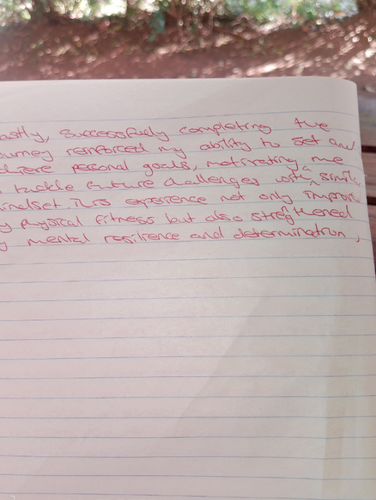 astly, Successfully completing the
ourney reinforced my ability to set an
chieve personal goals, motivating me
tackle future challenges with ^ simila
indset This experience not only improv
y physical fitness but also strengthened
y mental resilience and determination,